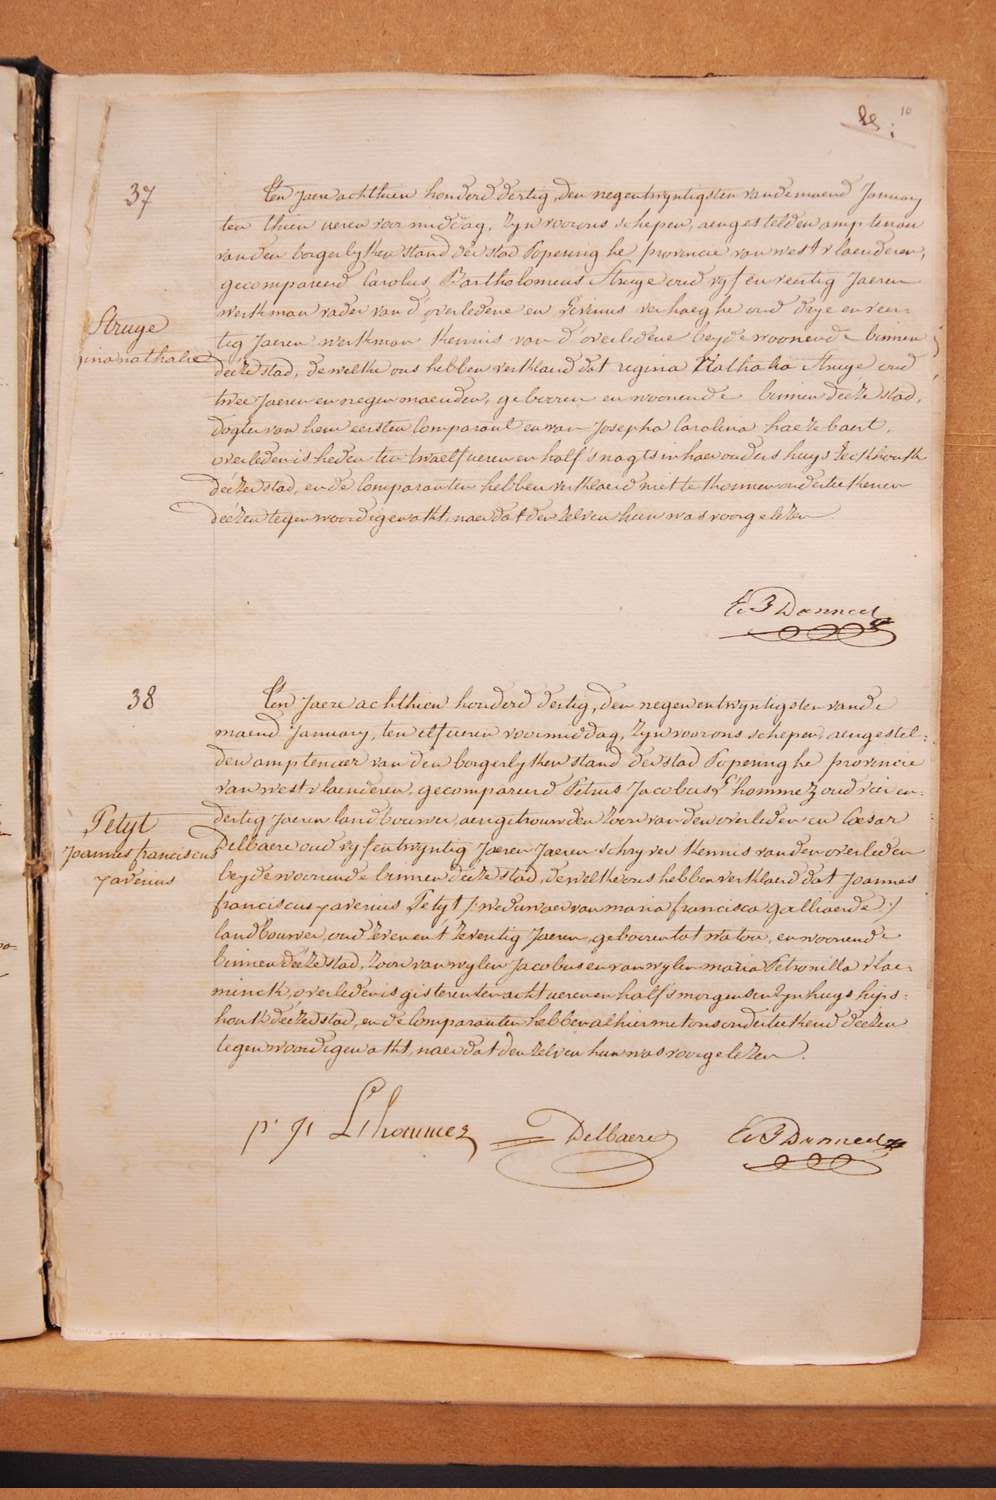 10
37
Ten Jaere achthien honderd dertig, den negentwyntigsten van de maend January
ten thien ueren voor middag, zyn voor ons schepen, aengestelden amptenaer
van den borgerlyken stand der stad Poperinghe provincie van westvlaenderen,
gecompareerd Carolus Bartholomeus Struye oud vyf en veertig Jaeren
werkman vader van d'overledene en Livinus verhaeghe oud drye en veer-
tig Jaeren werkman kennis van d'overledene beyde woonende binnen
deeze stad, de welke ons hebben verklaerd dat regina Nathalia Struye oud
twee Jaeren en negen maenden, geboren en woonende binnen deeze stad,
dogter van hem eersten Comparant en van Josepha Carolina haezebaert,
overleden is heden ten twaelf ueren en half snagts in haer ouders huys
deezer stad, en de Comparanten hebben verklaerd niet te konnen onderteekenen
deezen tegenwoordigen akt, naer dat den zelven hun was voorgelezen
Struye
gina nathalie
38
Ten Jaere achthien honderd dertig, den negenentwyntigsten van de
maend January, ten elf ueren voormiddag, zyn voor ons schepen, aengestel-
den amptenaer van den borgerlyken stand der stad Poperinghe provincie
van westvlaenderen, gecompareerd Petrus Jacobus L'hommez oud vier en
dertig Jaeren landbouwer, aengetrouwden zoon van den overleden en Cæsar
Delbaere oud vyfentwyntig Jaeren Jaeren schryver kennis van den overleden
beyde woonende binnen deeze stad, de welke ons hebben verklaerd dat Joannes
franciscus xaverius Petyt /: weduwaer van maria francisca galliaerde :/
landbouwer, oud zeven en t'zeventig Jaeren, geboren tot watou, en woonende
binnen deeze stad, zoon van wylen Jacobus en van wylen maria Petronilla vlae-
minck, overleden is gisteren ten acht ueren en half smorgens in zyn huys hips-
houk deezer stad, en de Comparanten hebben alhier met ons onderteekend deezen
tegenwoordigen akt, naer dat den zelven hun was voorgelezen.
Petyt
Joannes franciscus
xaverius
p. j. L'hommez Delbaere